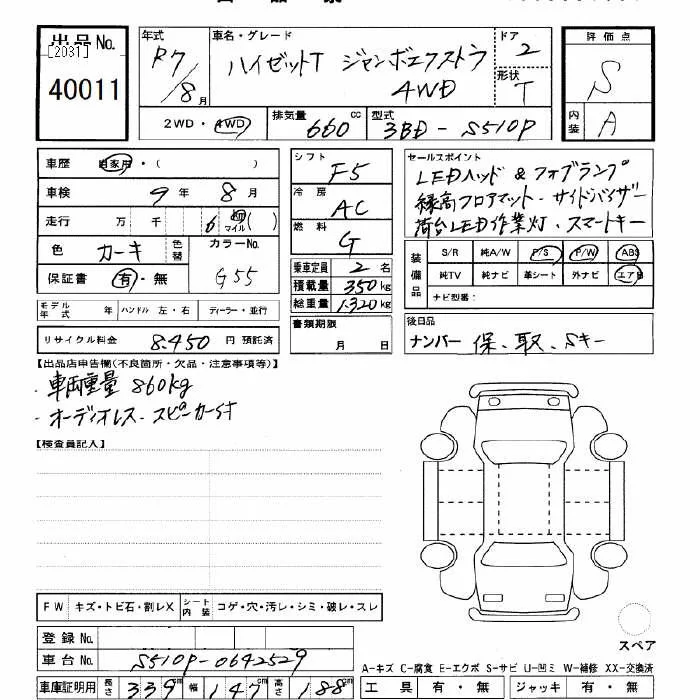 出品No.
[2031]
40011
年式 R7/8月
車名・グレード ハイゼットT ジャンボエクストラ 4WD
ドア 2
形状 T
2WD・4WD
排気量 660cc
型式 3BD-S510P
評価点 S
内装 A
車歴 自家用・( )
車検 9年8月
走行 万 千 6 km マイル ( )
色 カーキ 色替
カラーNo. G55
保証書 有・無
モデル年式 年 ハンドル 左・右 ディーラー・並行
リサイクル料金 8,450円 預託済
シフト F5
冷房 AC
燃料 G
乗車定員 2名
積載量 350kg
総重量 1320kg
書類期限 月 日
セールスポイント
LEDヘッド & フォグランプ
縁高フロアマット・サイドバイザー
荷台LED作業灯・スマートキー
装備品 S/R 純A/W P/S P/W ABS
純TV 純ナビ 革シート 外ナビ エアB
ナビ型番:
後日品
ナンバー 保、取、Sキー
【出品店申告欄(不良箇所・欠品・注意事項等)】
・車両重量 860kg
・オーディオレス・スピーカー付
【検査員記入】
FW キズ・トビ石・割レX シート内装 コゲ・穴・汚レ・シミ・破レ・スレ
登録No.
車台No. S510P-0642529
車庫証明用 長さ 339cm 幅 147cm 高さ 188cm
スペア
A-キズ C-腐食 E-エクボ S-サビ U-凹ミ W-補修 XX-交換済
工具 有・無 ジャッキ 有・無